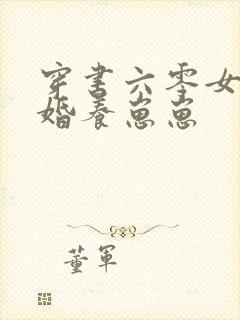 穿书六零女
婚养崽崽
董军